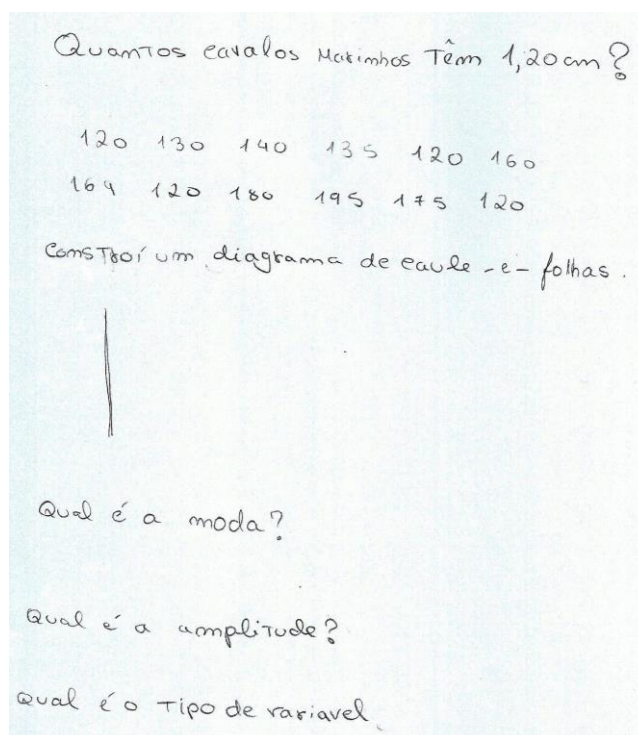 Quantos cavalos Marinhos Têm 1,20 cm?
120 130 140 135 120 160
164 120 180 195 175 120
Constroí um diagrama de caule-e-folhas.
Qual é a moda?
Qual é a amplitude?
Qual é o Tipo de variavel.